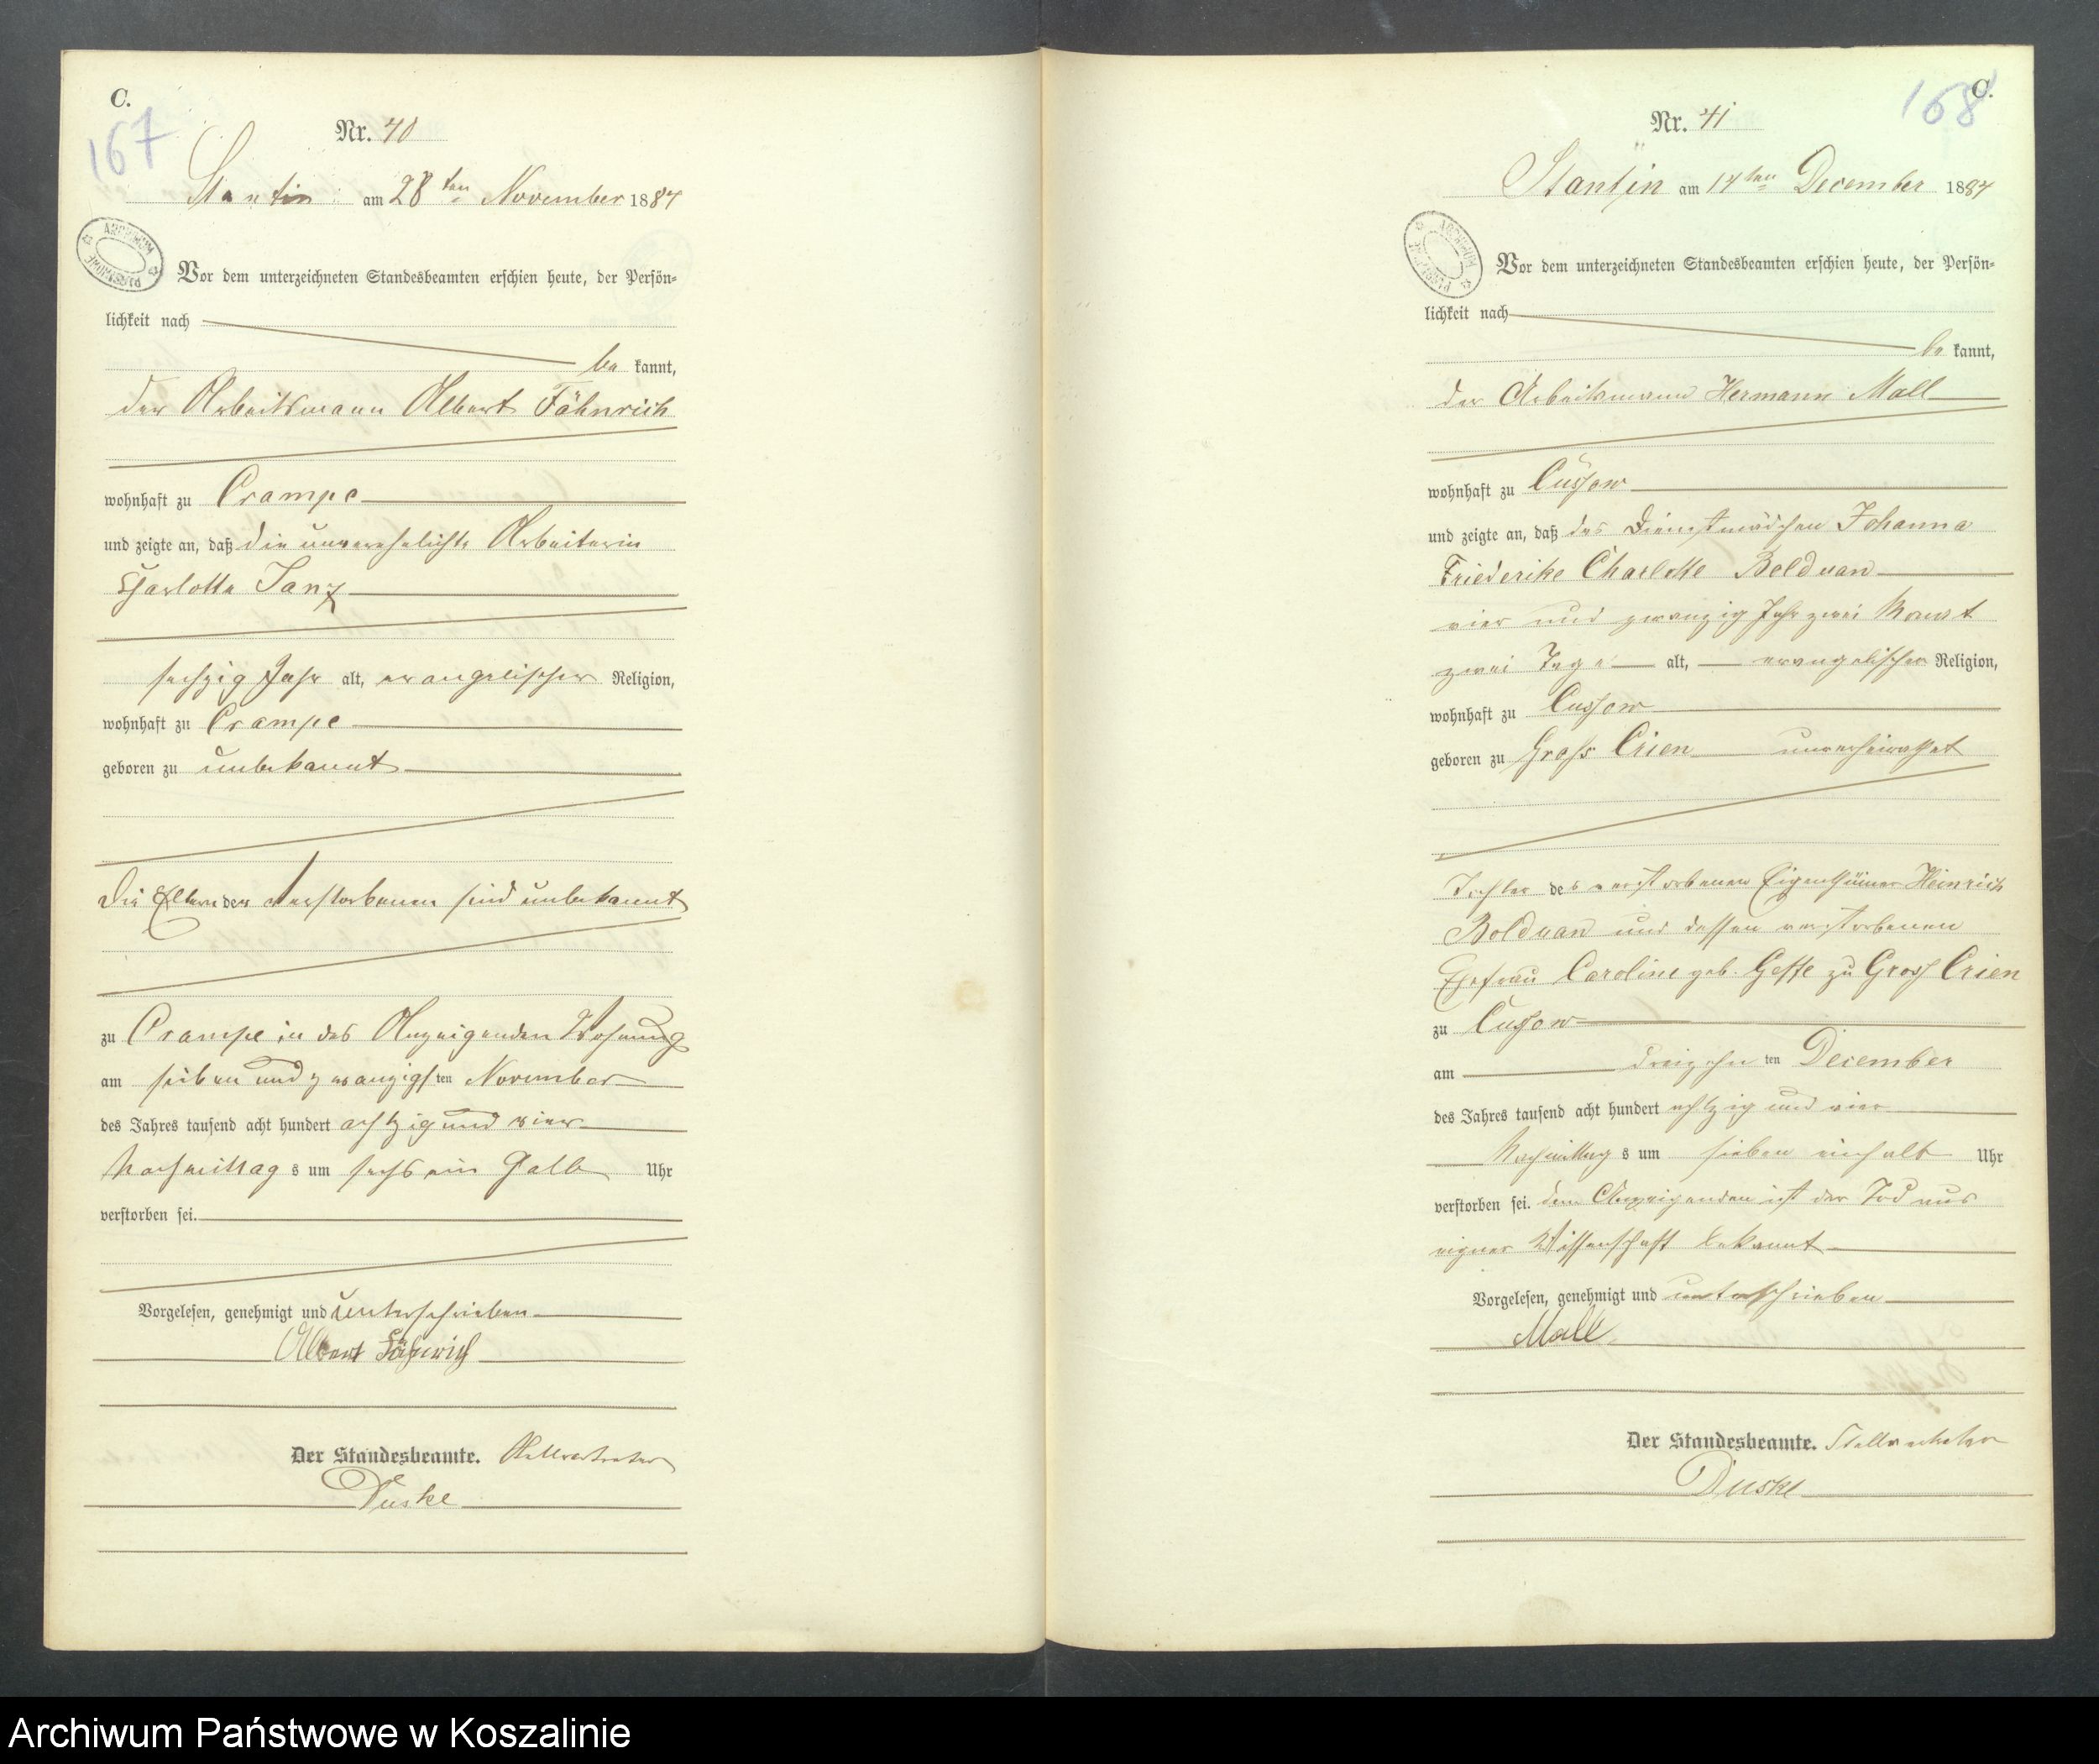 C.
167
Nr. 40
Stantin am 28ten November 1884
ARCHIWUM PAŃSTWOWE
Vor dem unterzeichneten Standesbeamten erschien heute, der Persön-
lichkeit nach
be kannt,
der Arbeitsmann Albert Fähnrich
wohnhaft zu Crampe
und zeigte an, daß die unverehelichte Arbeiterin
Charlotte Janz
sechzig Jahr alt, evangelischer Religion,
wohnhaft zu Crampe
geboren zu unbekannt
Die Eltern der Verstorbenen sind unbekannt
zu Crampe in des Anzeigenden Wohnung
am sieben und zwanzigsten November
des Jahres tausend acht hundert achtzig und vier
Nachmittags um sechs ein halb Uhr
verstorben sei.
Vorgelesen, genehmigt und unterschrieben
Albert Fähnrich
Der Standesbeamte. Stellvertreter
Duske
C.
168
Nr. 41
Stantin am 14ten December 1884
ARCHIWUM PAŃSTWOWE
Vor dem unterzeichneten Standesbeamten erschien heute, der Persön-
lichkeit nach
be kannt,
der Arbeitsmann Hermann Mall
wohnhaft zu Cussow
und zeigte an, daß das Dienstmädchen Johanna
Friederike Charlotte Bolduan
vier und zwanzig Jahr zwei Monat
zwei Tage alt, evangelischer Religion,
wohnhaft zu Cussow
geboren zu Groß Crien unverheirathet
Tochter des verstorbenen Eigenthümer Heinrich
Bolduan und dessen verstorbenen
Ehefrau Caroline geb. zu Gross Crien
zu Cussow
am dreizehnten December
des Jahres tausend acht hundert achtzig und vier
Nachmittags um sieben einhalb Uhr
verstorben sei. dem Anzeigenden ist der Tod aus
eigner Wissenschaft bekannt
Vorgelesen, genehmigt und unterschrieben
Mall
Der Standesbeamte. Stellvertreter
Duske
Archiwum Państwowe w Koszalinie